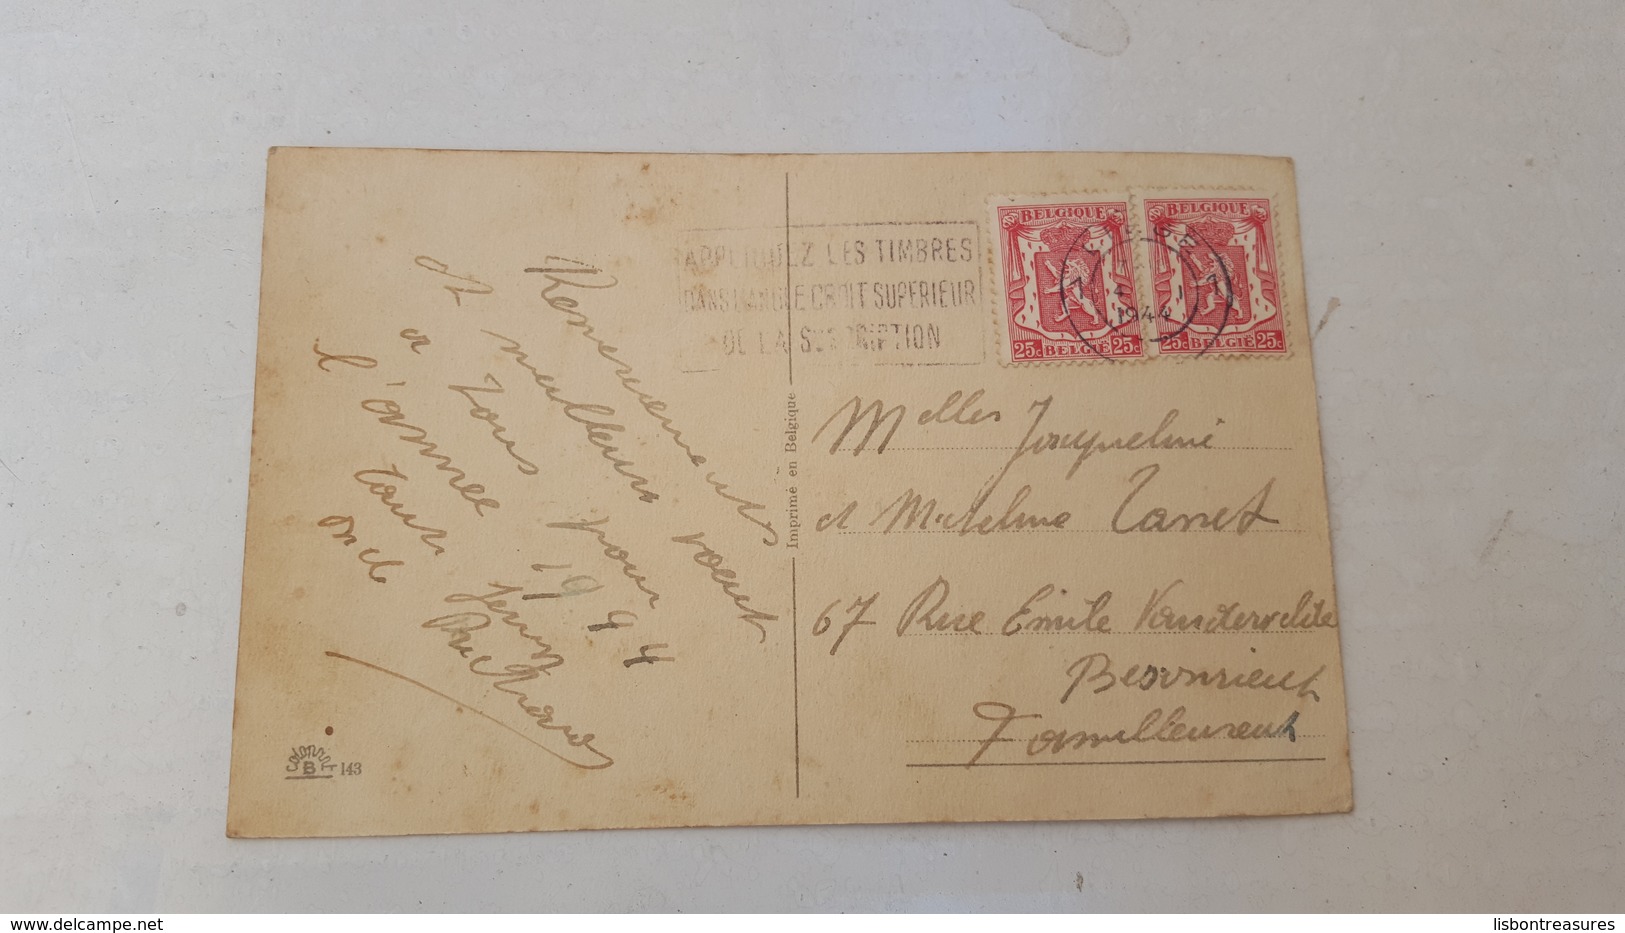 Remerciements
et meilleurs voeux
a tous pour
l'année 1944
tous
oncle
APPLIQUEZ LES TIMBRES
DANS L'ANGLE DROIT SUPERIEUR
DE LA SUSCRIPTION
BELGIQUE
25c BELGIE 25c
BELGIQUE
25c BELGIE 25c
LIEGE
4 1
1944
Imprimé en Belgique
Melles Jacqueline
et Madeleine
67 Rue Emile Vandervelde
Besonrieux
Familleureux
COLORPRINT
B 143
delcampe.net
lisbontreasures